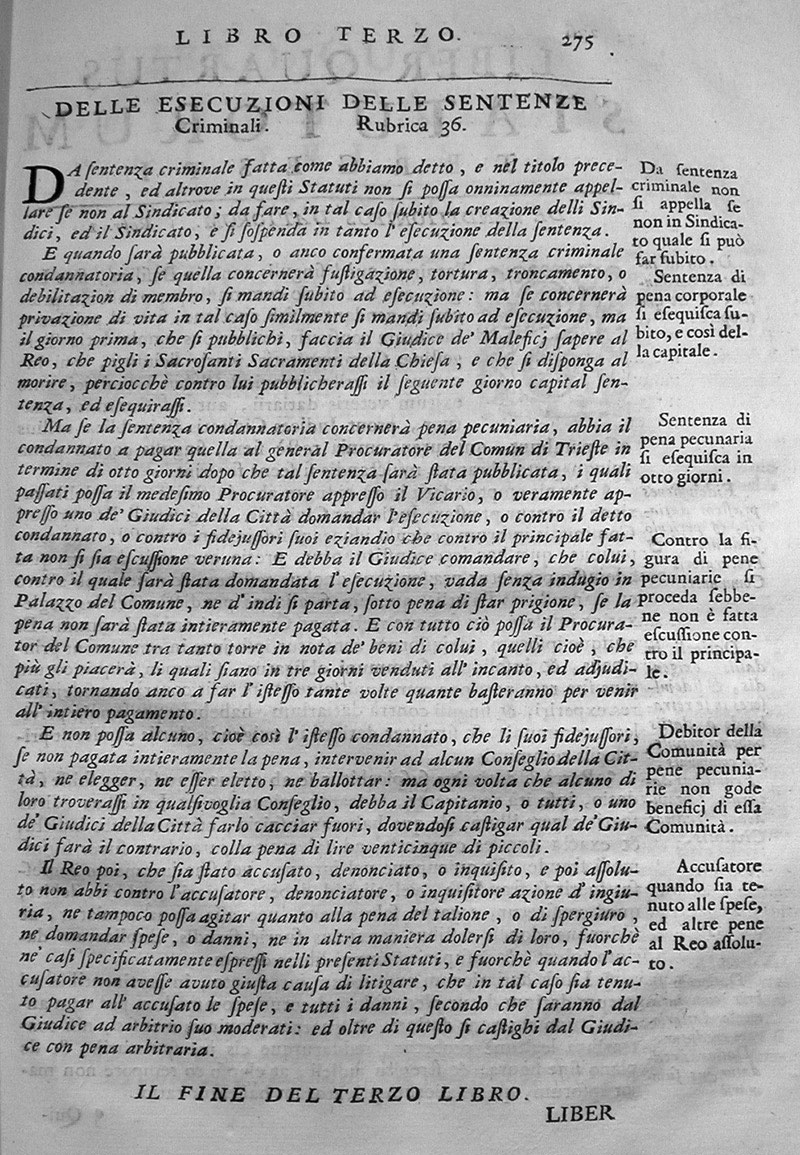 LIBRO TERZO. 275
DELLE ESECUZIONI DELLE SENTENZE
Criminali. Rubrica 36.
DA ſentenza criminale fatta come abbiamo detto, e nel titolo prece-
dente, ed altrove in queſti Statuti non ſi poſſa onninamente appel-
lare ſe non al Sindicato; da fare, in tal caſo ſubito la creazione delli Sin-
dici, ed il Sindicato, e ſi ſoſpenda in tanto l'eſecuzione della ſentenza.
E quando ſarà pubblicata, o anco confermata una ſentenza criminale
condannatoria, ſe quella concernerà fuſtigazione, tortura, troncamento, o
debilitazion di membro, ſi mandi ſubito ad eſecuzione: ma ſe concernerà
privazione di vita in tal caſo ſimilmente ſi mandi ſubito ad eſecuzione, ma
il giorno prima, che ſi pubblichi, faccia il Giudice de' Maleficj ſapere al
Reo, che pigli i Sacroſanti Sacramenti della Chieſa, e che ſi diſponga al
morire, perciocchè contro lui pubblicheraſſi il ſeguente giorno capital ſen-
tenza, ed eſequiraſſi.
Ma ſe la ſentenza condannatoria concernerà pena pecuniaria, abbia il
condannato a pagar quella al general Procuratore del Comun di Trieſte in
termine di otto giorni dopo che tal ſentenza ſarà ſtata pubblicata, i quali
paſſati poſſa il medeſimo Procuratore appreſſo il Vicario, o veramente ap-
preſſo uno de' Giudici della Città domandar l'eſecuzione, o contro il detto
condannato, o contro i fidejuſſori ſuoi eziandio che contro il principale fat-
ta non ſi ſia eſcuſſione veruna: E debba il Giudice comandare, che colui,
contro il quale ſarà ſtata domandata l'eſecuzione, vada ſenza indugio in
Palazzo del Comune, ne d'indi ſi parta, ſotto pena di ſtar prigione, ſe la
pena non ſarà ſtata intieramente pagata. E con tutto ciò poſſa il Procura-
tor del Comune tra tanto torre in nota de' beni di colui, quelli cioè, che
più gli piacerà, li quali ſiano in tre giorni venduti all'incanto, ed adjudi-
cati, tornando anco a far l'iſteſſo tante volte quante baſteranno per venir
all'intiero pagamento.
E non poſſa alcuno, cioè così l'iſteſſo condannato, che li ſuoi fidejuſſori,
ſe non pagata intieramente la pena, intervenir ad alcun Conſeglio della Cit-
tà, ne elegger, ne eſſer eletto, ne ballottar: ma ogni volta che alcuno di
loro troveraſſi in qualſivoglia Conſeglio, debba il Capitanio, o tutti, o uno
de' Giudici della Città farlo cacciar fuori, dovendoſi caſtigar qual de' Giu-
dici farà il contrario, colla pena di lire venticinque di piccoli.
Il Reo poi, che ſia ſtato accuſato, denonciato, o inquiſito, e poi aſſolu-
to non abbi contro l'accuſatore, denonciatore, o inquiſitore azione d'ingiu-
ria, ne tampoco poſſa agitar quanto alla pena del talione, o di ſpergiuro,
ne domandar ſpeſe, o danni, ne in altra maniera dolerſi di loro, fuorchè
ne' caſi ſpecificatamente eſpreſſi nelli preſenti Statuti, e fuorchè quando l'ac-
cuſatore non aveſſe avuto giuſta cauſa di litigare, che in tal caſo ſia tenu-
to pagar all'accuſato le ſpeſe, e tutti i danni, ſecondo che ſaranno dal
Giudice ad arbitrio ſuo moderati: ed oltre di queſto ſi caſtighi dal Giudi-
ce con pena arbitraria.
Da ſentenza
criminale non
ſi appella ſe
non in Sindica-
to quale ſi può
far ſubito.
Sentenza di
pena corporale
ſi eſequiſca ſu-
bito, e così del-
la capitale.
Sentenza di
pena pecunaria
ſi eſequiſca in
otto giorni.
Contro la ſi-
gura di pene
pecuniarie ſi
proceda ſebbe-
ne non è fatta
eſcuſſione con-
tro il principa-
le.
Debitor della
Comunità per
pene pecunia-
rie non gode
beneficj di eſſa
Comunità.
Accuſatore
quando ſia te-
nuto alle ſpeſe,
ed altre pene
al Reo aſſolu-
to.
IL FINE DEL TERZO LIBRO.
LIBER